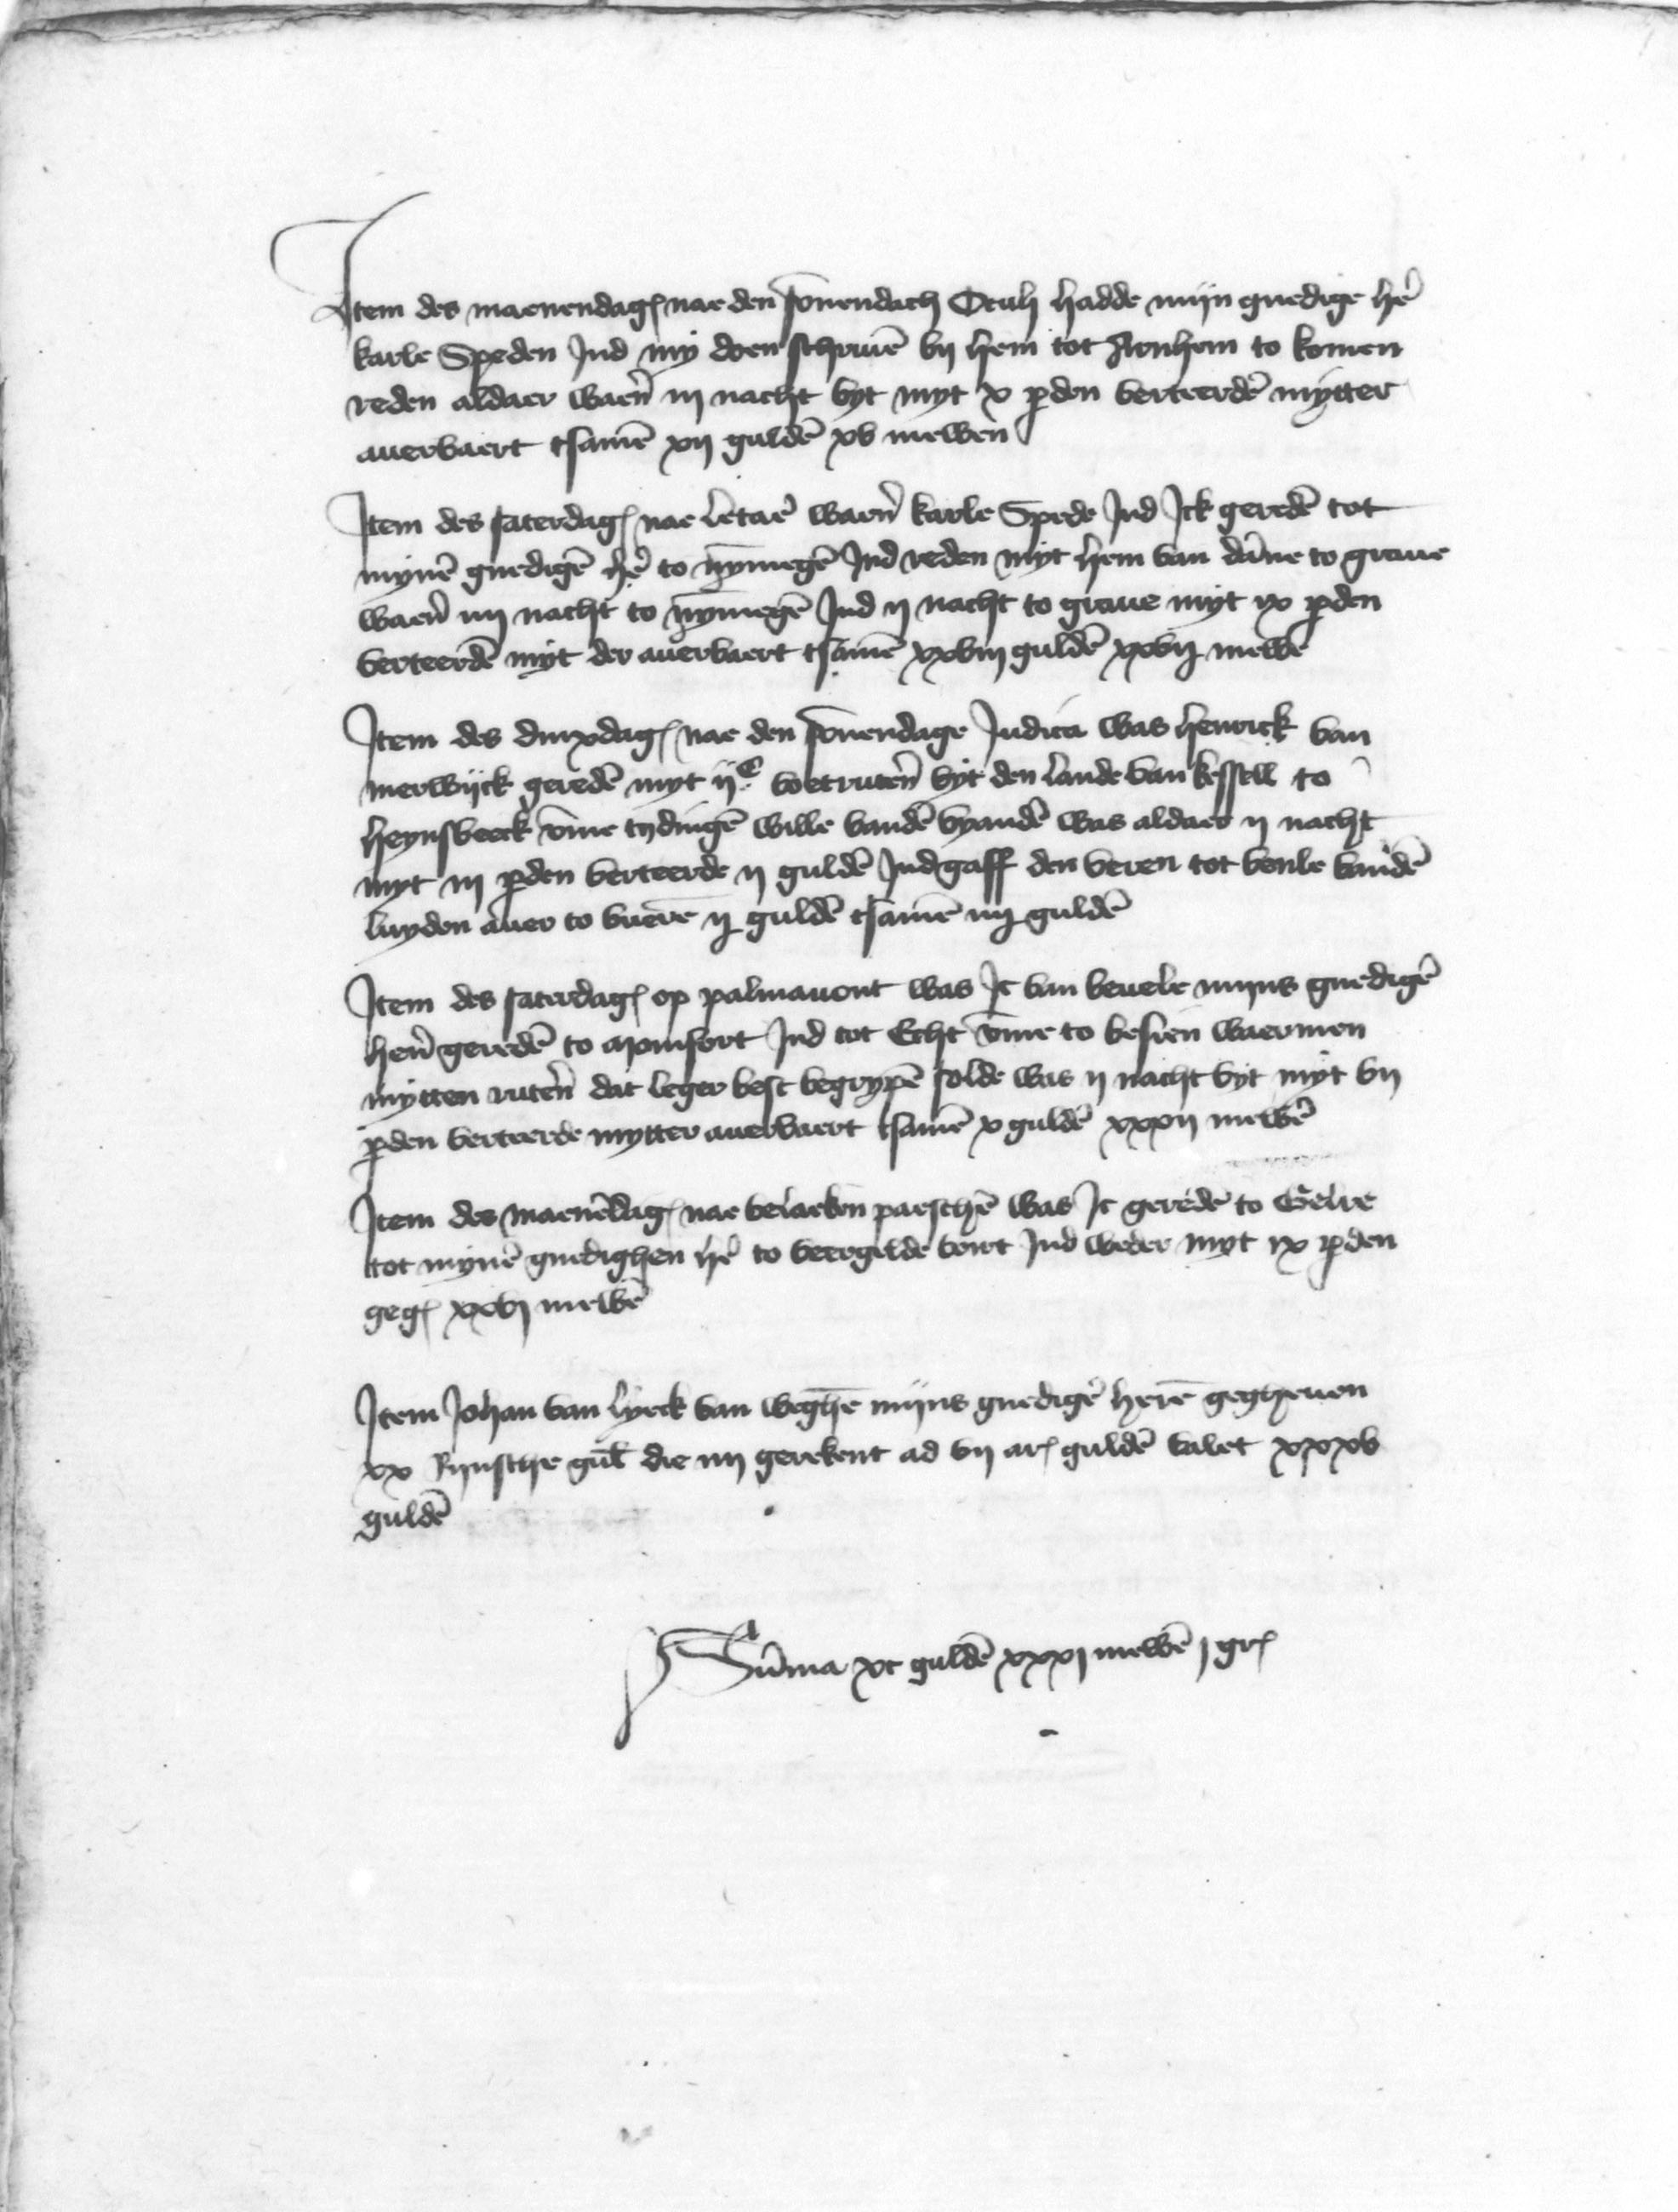 Item des maenendag nae den sonendach Oculi hadde mijn gnedige her
karle Speden Ind my doen schriuen by hem tot Arnhem to komen
reden aldaer waern iij nacht vyt myt x perden verteerden mytter
auervaert tsamen xij gulden xv niewen
Item des saterdag nae Letare waern karle Spede Ind Ick gereden tot
mynen gnedigen her to nymegen Ind reden myt hem van danne to graue
waern iiij nacht to nymegen Ind ij nacht to graue myt ix perden
verteerden myt der auervaert tsamen xxviij gulden xxvij niewen
Item des dinxdag nae den sonendage Judica was henrick van
merwijck gereden myt ijc voetruteren vyt den lande van kessell to
heynsbeeck vmme tydingen wille vanden vyanden was aldaer ij nacht
myt iij perden verteerde ij gulden Ind gaff den veren tot venle vanden
luyden auer to vueren ij gulden tsamen iiij gulden
Item des saterdag op palmauont was Ic van beuele mijns gnedigen
heren gereden to monfort Ind tot Echt vmme to besien waermen
mytten ruteren dat leger best begrypen solde was ij nacht vyt myt vij
perden verteerde mytter auervaert tsamen x gulden xxxij niewen
Item des maenendag nae beloken paeschen was Ic gereden to Gelre
tot mynen gnedighen her to veergelde voirt Ind weder myt ix perden
geg xxvj niewen
Item Johan van lyeck van weghen mijns gnedigen heren gegheuen
xx Rynsche guld die iiij gerekent ad vij ar gulden valet xxxv
gulden
Summa xc gulden xxxj niewen j gr